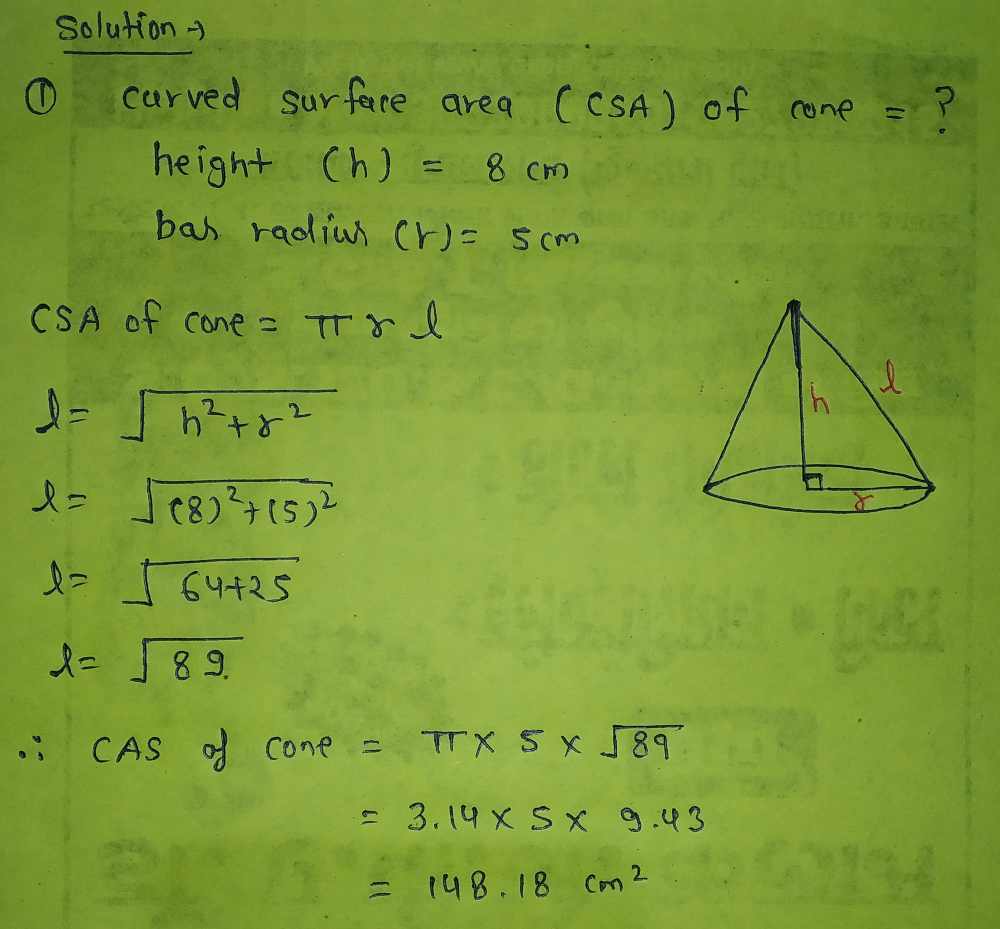 Solution →
① curved surface area (CSA) of cone = ?
height (h) = 8 cm
bas radius (r) = 5 cm
CSA of cone = π r l
l = √h²+r²
h
l
r
l = √(8)²+(5)²
l = √64+25
l = √89.
∴ CAS of cone = π × 5 × √89
= 3.14 × 5 × 9.43
= 148.18 cm²